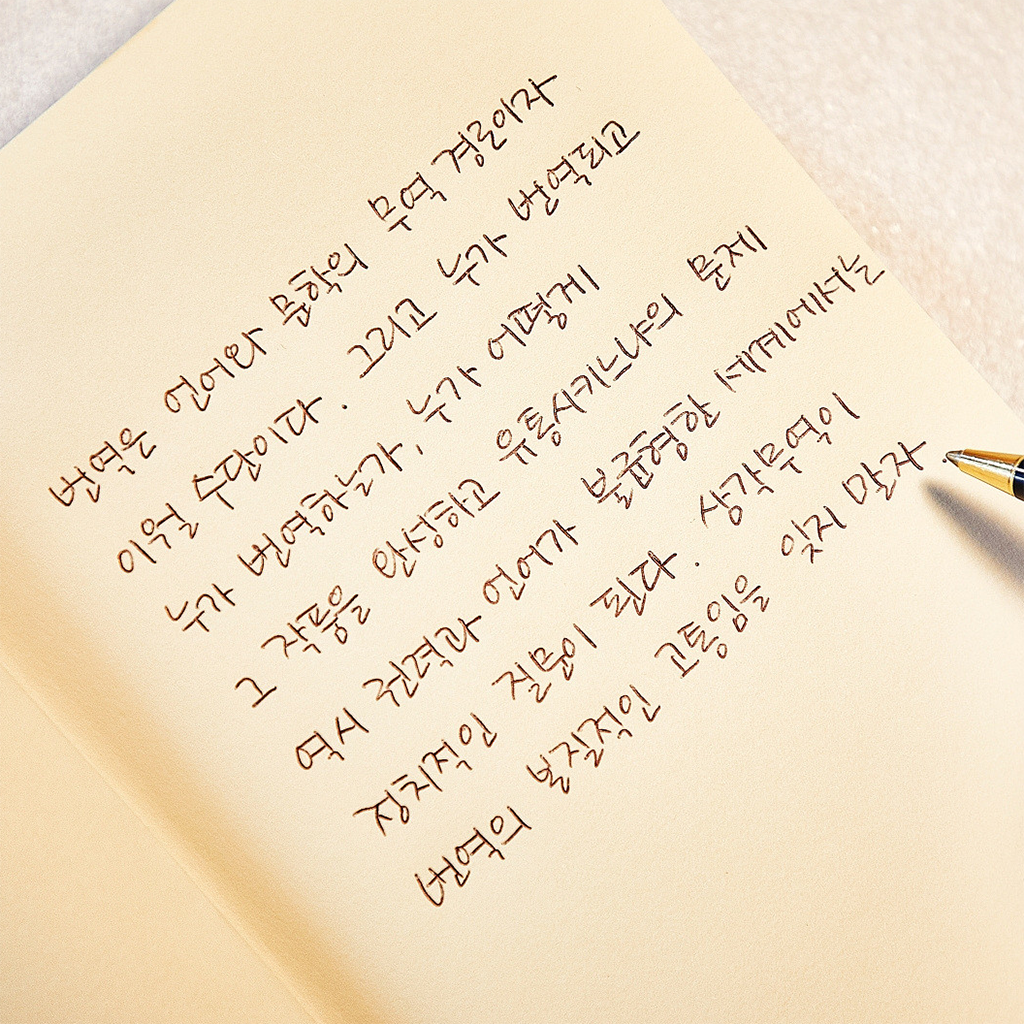 번역은 언어와 문학의 무역 경로이자
이월 수단이다. 그리고 누가 번역되고
누가 번역하는가, 누가 어떻게
그 작품을 완성하고 유통시키느냐의 문제
역시 권력과 언어가 불균형한 세계에서는
정치적인 질문이 된다. 삼각무역이
번역의 본질적인 고통임을 잊지 말자.